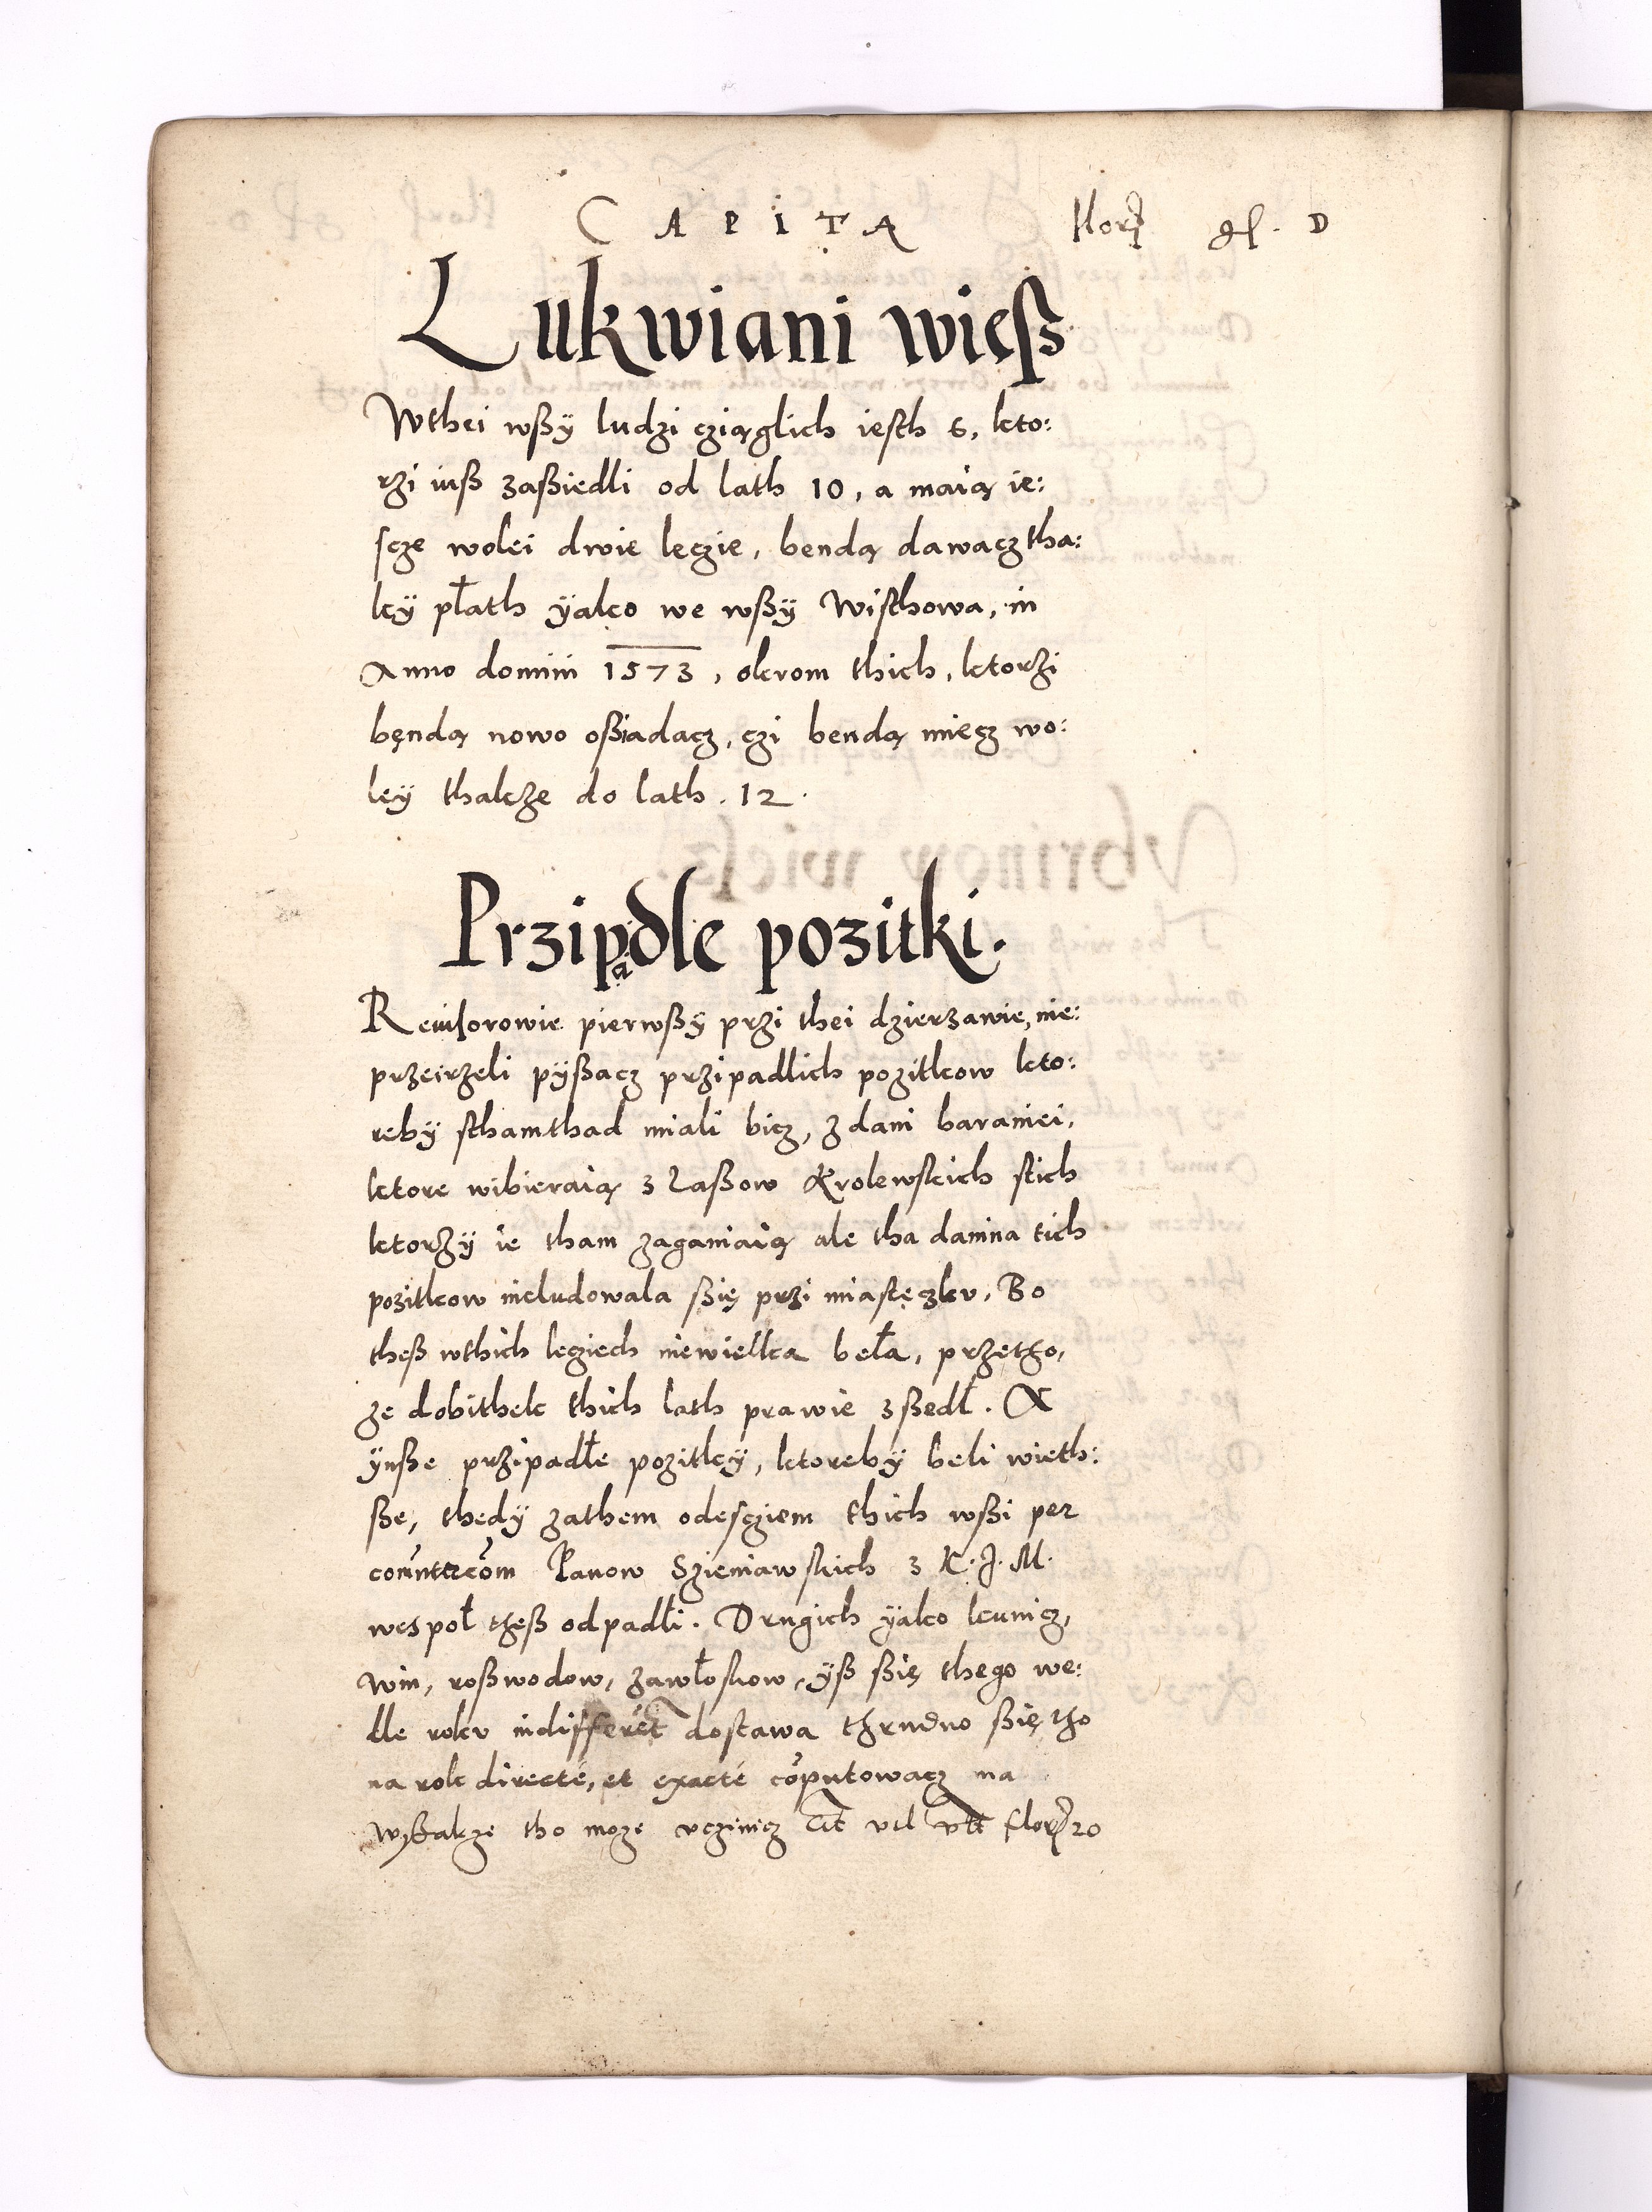 CAPITA flor. gl. D
Lukwiani wieß
Wthei wßÿ ludzi cziąglich iesth 6, kto:
rzi iuß zaßiedli od lath 10, a maią ie:
scze wolei dwie lęczie, bendą dawacz tha:
kÿ płath ÿako we wßÿ Wisthowa, in
Anno domini 1573, okrom thich, ktorzi
bęndą nowo oßiadacz, czi bendą miecz wo:
leÿ thakze do lath. 12.
Przipadle pozitki.
Rewisorowie pierwßÿ przi thei dzierzawie, nie:
przeirzeli pÿßacz przipadlich pozitkow kto:
rebÿ sthamthad miali bicz, z dani baraniei,
ktore wibieraią z Laßow Krolewskich stich
ktorzÿ ie tham zaganiaią ale tha danina tich
pozitkow includowala ßię przi miastęczku, Bo
theß wthich leciech niewielka beła, przetho,
ze dobithek thich lath prawie zßedł. A
ÿnße przipadłe pozitkÿ, ktorebÿ beli wieth:
ße, thedÿ zathem odesciem thich wßi per
Panow Szieniawskich z K. J. M.
wespoł theß odpadłi. Drugich ÿako kunicz,
win, roßwodow, zawłoskow, ÿß ßię thego we:
dle roku indifferēt dostawa thrudno ßię tho
na rok directé, et exacté cōputowacz ma
Wßakze tho moze uczinicz flor 20